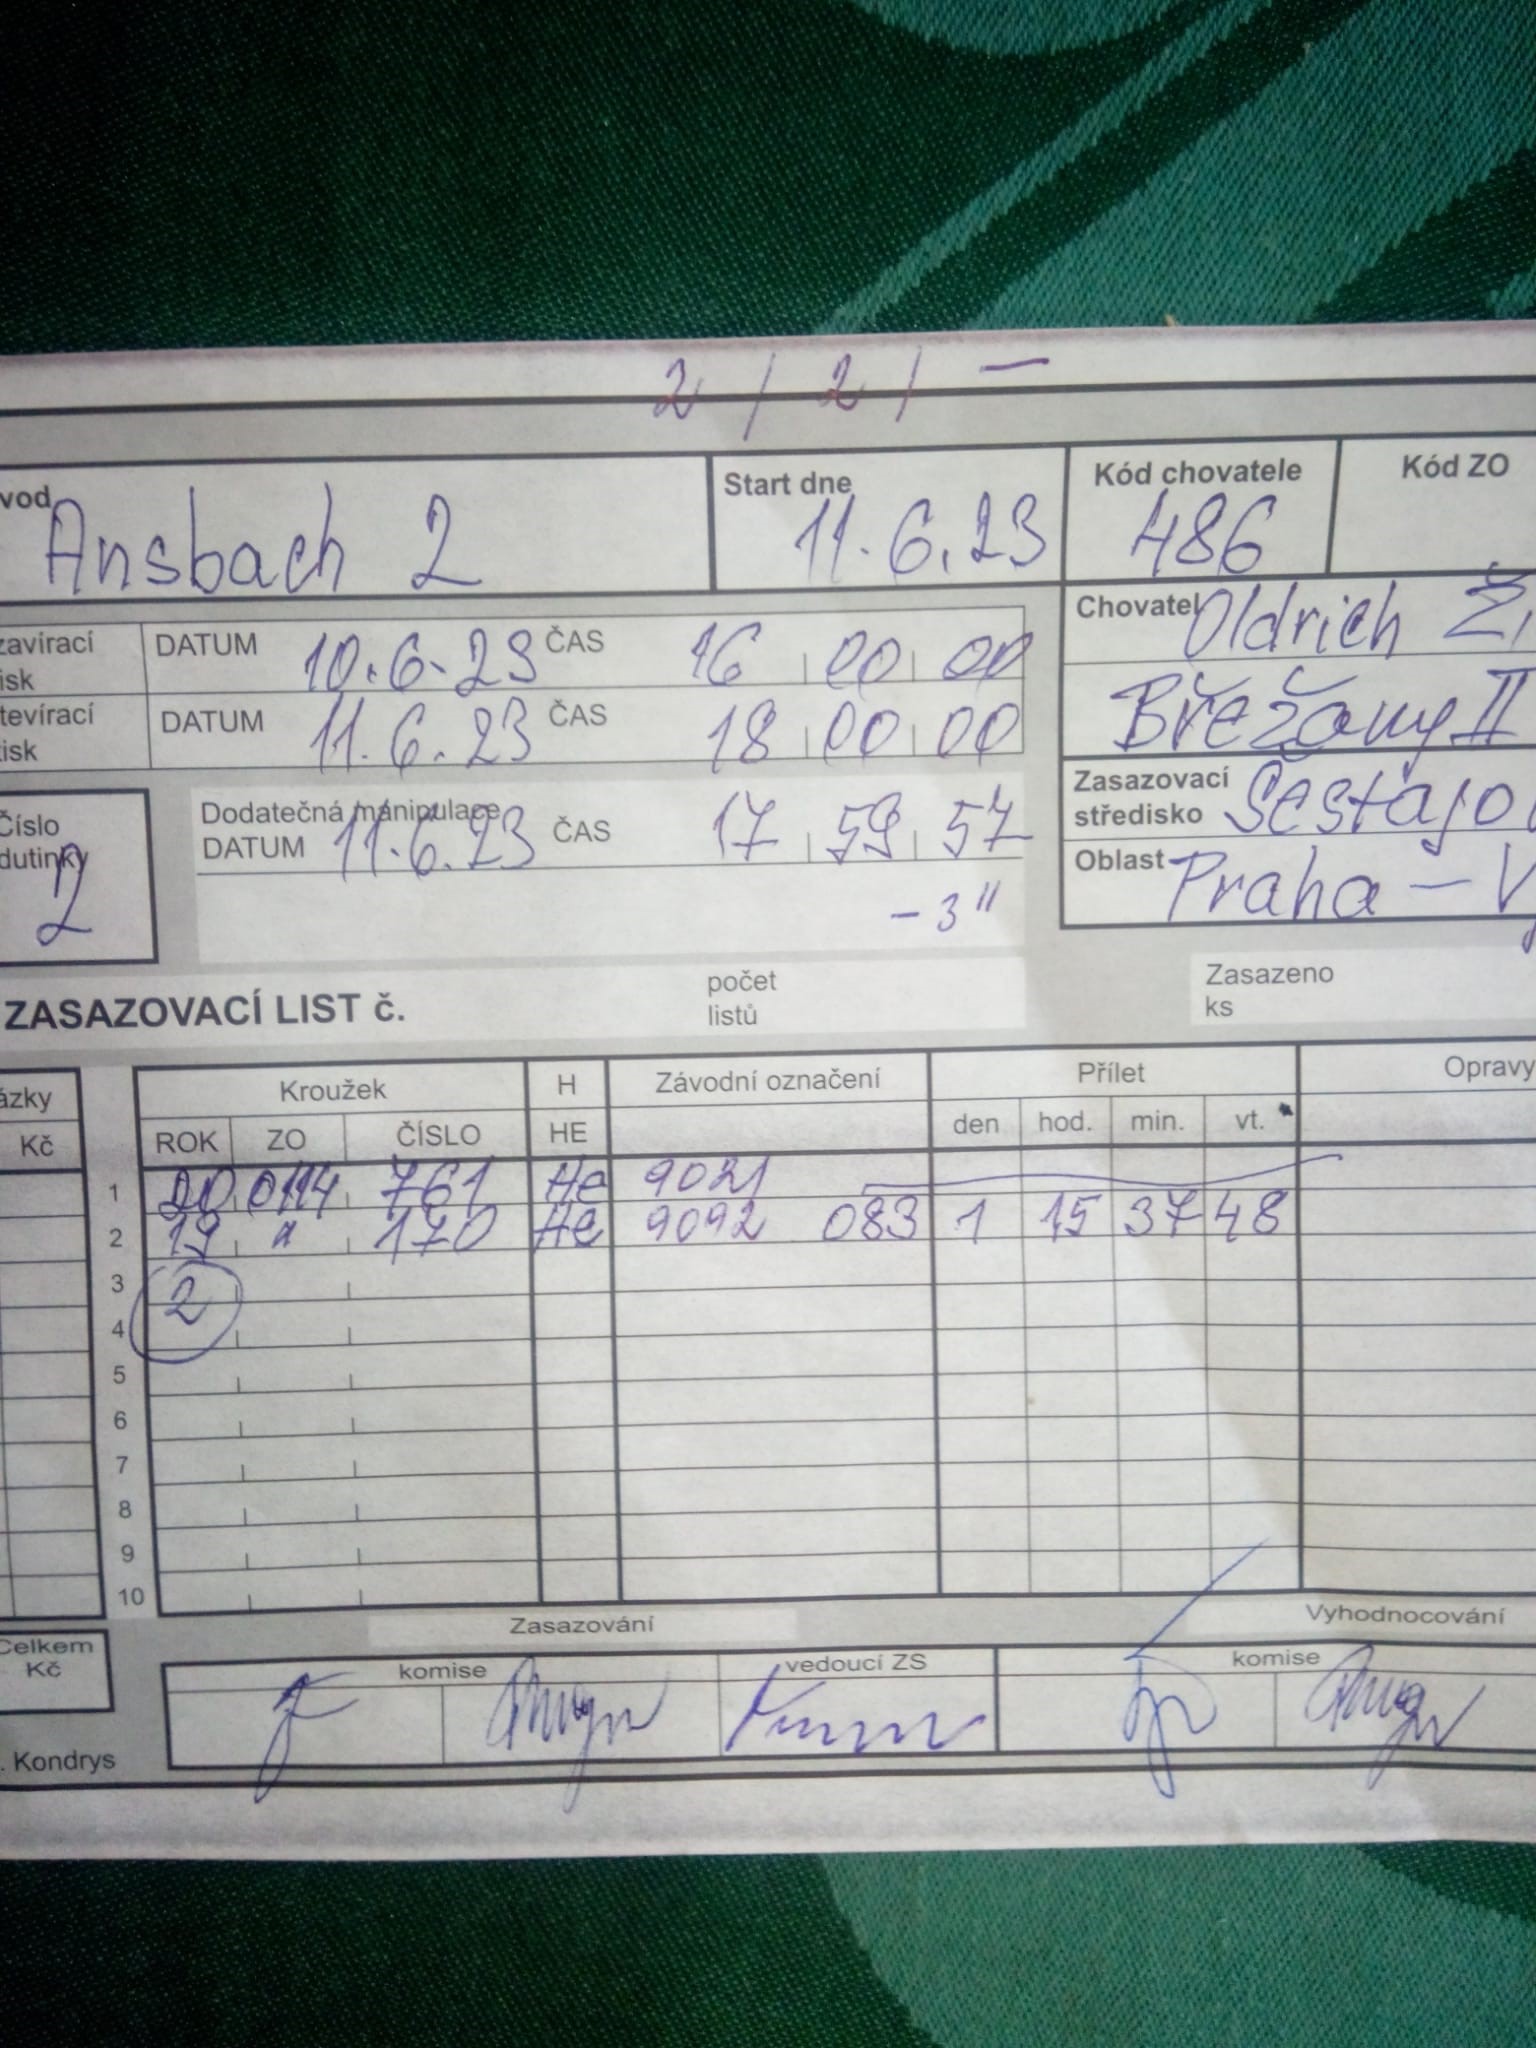 2 / 2 / —
vod Ansbach 2
Start dne 11.6.23
Kód chovatele 486
Kód ZO
zavírací
isk
DATUM 10.6.23 ČAS 16 00 00
tevírací
tisk
DATUM 11.6.23 ČAS 18 00 00
Chovatel Oldrich Ži
Břežany II
Číslo
dutinky
2
Dodatečná manipulace
DATUM 11.6.23 ČAS 17 59 57
- 3"
Zasazovací
středisko Šestajo
Oblast Praha - V
ZASAZOVACÍ LIST č.
počet
listů
Zasazeno
ks
ázky
Kč
Kroužek H Závodní označení Přílet Opravy
ROK ZO ČÍSLO HE den hod. min. vt.
1 20 0114 761 He 9021
2 19 " 170 He 9092 083 1 15 37 48
3
2
4
5
6
7
8
9
10
Celkem
Kč
Zasazování
Vyhodnocování
komise
vedoucí ZS
komise
. Kondrys